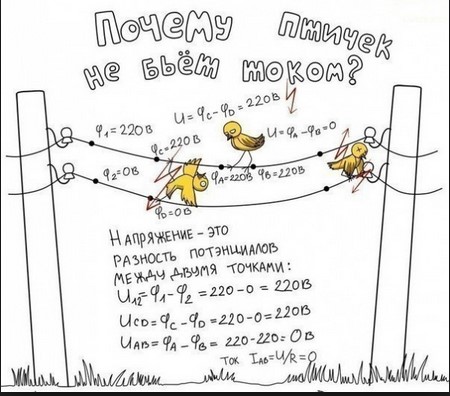 Почему птичек
не бьёт током?
U = φC - φD = 220 В
φ1 = 220 В
φC = 220 В
U = φA - φB = 0
φ2 = 0 В
φA = 220 В
φB = 220 В
φD = 0 В
Напряжение - это
разность потэнциалов
между двумя точками:
U12 = φ1 - φ2 = 220 - 0 = 220 В
UCD = φC - φD = 220 - 0 = 220 В
UAB = φA - φB = 220 - 220 = 0 В
ток IAB = U/R = 0